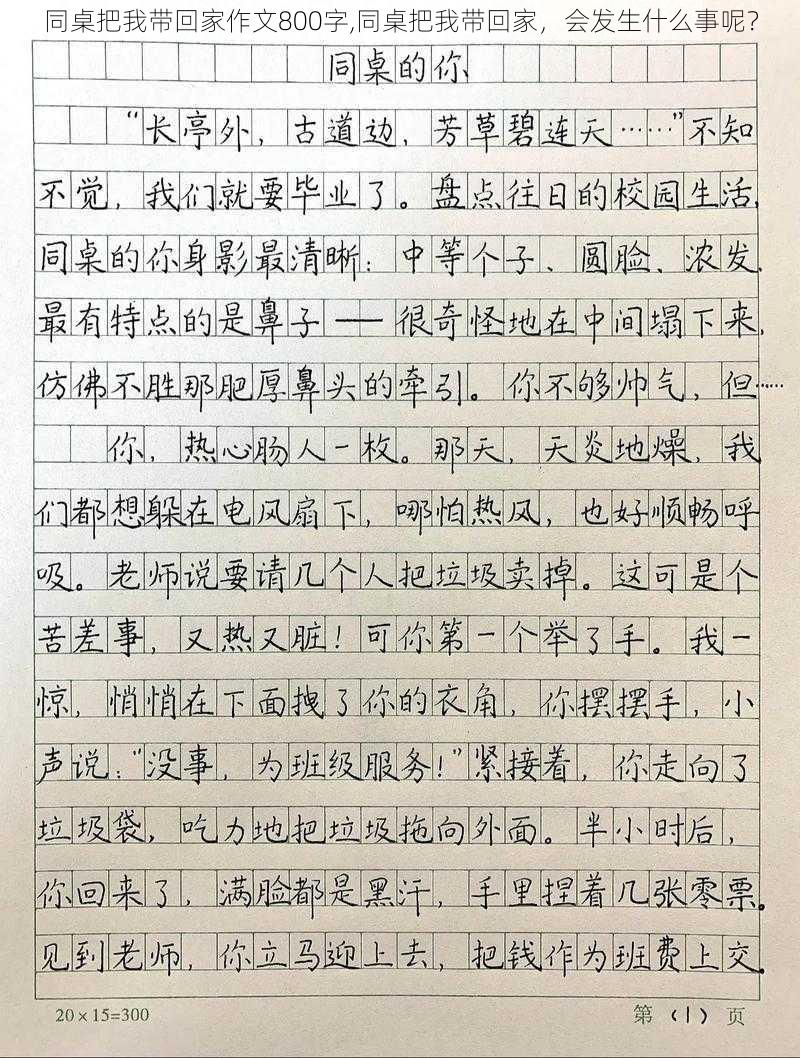 同桌把我带回家作文800字,同桌把我带回家，会发生什么事呢?
同桌的你
“长亭外，古道边，芳草碧连天……”不知
不觉，我们就要毕业了。盘点往日的校园生活，
同桌的你身影最清晰：中等个子、圆脸、浓发，
最有特点的是鼻子——很奇怪地在中间塌下来，
仿佛不胜那肥厚鼻头的牵引。你不够帅气，但……
你，热心肠人一枚。那天，天炎地燥，我
们都想躲在电风扇下，哪怕热风，也好顺畅呼
吸。老师说要请几个人把垃圾卖掉。这可是个
苦差事，又热又脏！可你第一个举了手。我一
惊，悄悄在下面拽了你的衣角，你摆摆手，小
声说：“没事，为班级服务！”紧接着，你走向了
垃圾袋，吃力地把垃圾拖向外面。半小时后，
你回来了，满脸都是黑汗，手里捏着几张零票。
见到老师，你立马迎上去，把钱作为班费上交。
20×15=300
第（1）页